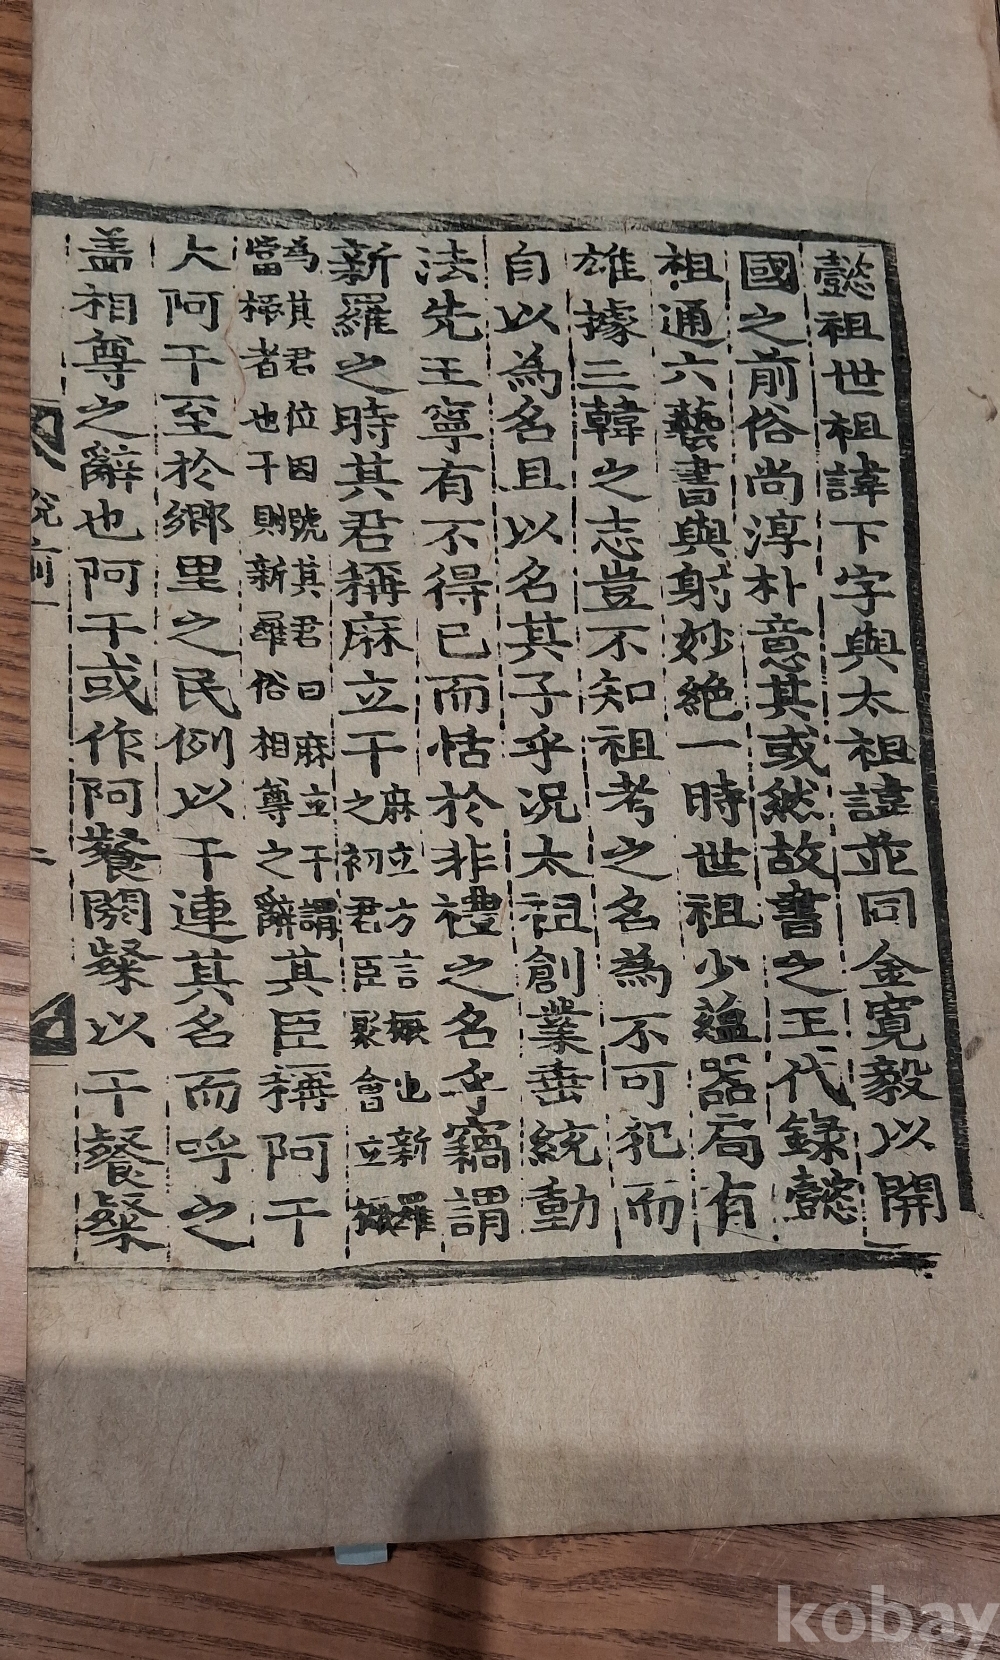 懿祖世祖諱下字與太祖諱並同金寬毅以開
國之前俗尚淳朴意其或然故書之王代錄懿
祖通六藝書與射妙絶一時世祖少蘊器局有
雄據三韓之志豈不知祖考之名為不可犯而
自以為名且以名其子乎况太祖創業垂統動
法先王寧有不得已而恬於非禮之名乎竊謂
新羅之時其君稱麻立干麻立方言橛也新羅
之初君臣聚會立橛
為其君位因號其君曰麻立干謂
當橛者也干則新羅俗相尊之辭其臣稱阿干
大阿干至於鄉里之民例以干連其名而呼之
盖相尊之辭也阿干或作阿餐閼粲以干餐粲
kobay